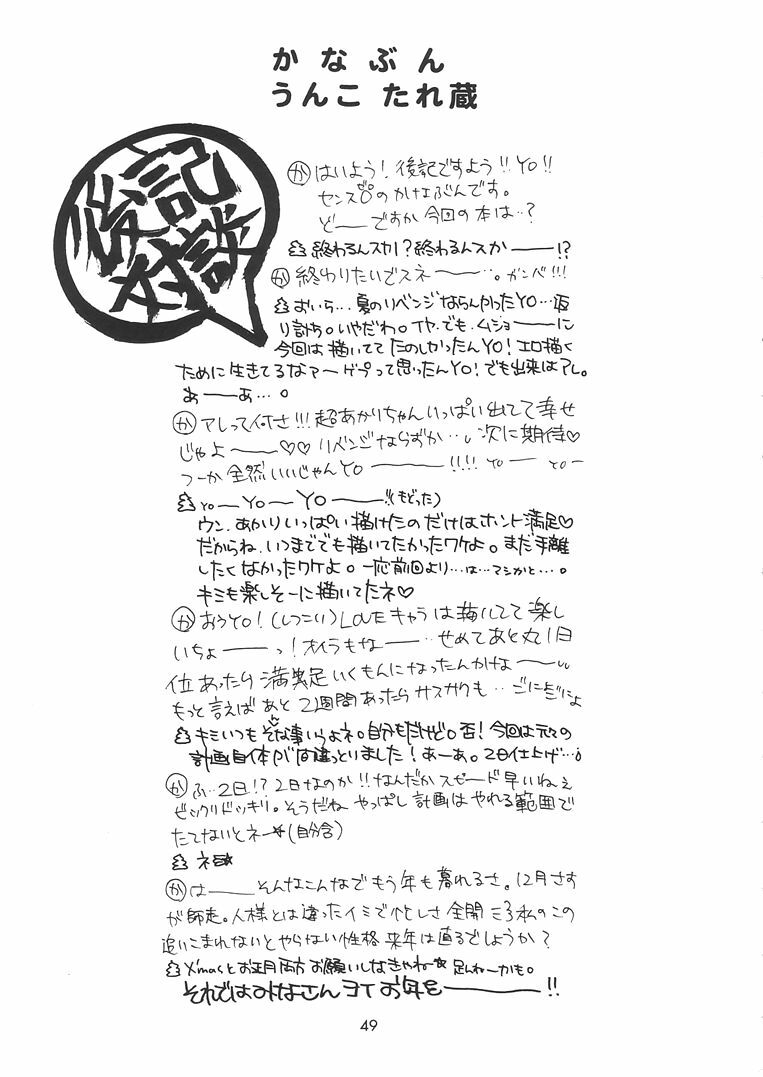 かなぶん
うんこ たれ蔵
後記
対談
か はいよう！後記ですよう!! YO!!
センス○のかなぶんです。
どーですか今回の本は…?
終わるんスカ！？終わるんスかーーー!?
か 終わりたいでスネーー…。ガンバ!!!
おいら…夏のリベンジならんかったYO…返
り討ち。いやだわ。イヤ、でも、ムショーーに
今回は描いててたのしかったんYO！エロ描く
ために生きてるなァーゲプって思ったんYO！でも出来はアレ。
あーーあ…。
か アレって何さ!!!超あかりちゃんいっぱい出てて幸せ
じゃよーー♡♡ リベンジならずか…。次に期待♡
つーか全然いいじゃんYOーーー!!!! YOー YOー
YOーYOーYOーー!!(もどった)
ウン、あかりいっぱい描けたのだけはホント満足♡
だからね、いつまででも描いてたかったワケよ。まだ手離
したくなかったワケよ。一応前回より…は…マシかと…。
キミも楽しそーに描いてたネ♡
か おうYO！(しつこい) LOVEキャラは描いてて楽し
いちょーーっ！オイラもなーー…せめてあと丸1日
位あったら満足いくもんになったんかなーー
もっと言えばあと2週間あったらサスガクも…ごにょごにょ
キミいつもそな事いうよネ。自分もだけど。否！今回は元々の
計画自体が間違っといました！あーあ。2日仕上げ…。
か ふ…2日!?2日なのか!!なんだかスピード早いねぇ
ビックリドッキリ。そうだね やっぱし計画はやれる範囲で
たてないとネー★(自分含)
ネ★
か はーーそんなこんなでもう年も暮れるさ。12月さす
が師走。人様とは違ったイミで忙しさ全開ミ3私のこの
追いこまれないとやらない性格 来年は直るでしょうか？
X'masとお正月両方お願いしなきゃねー★足んねーかも。
それではみなさんヨイお年をーーー!!
49